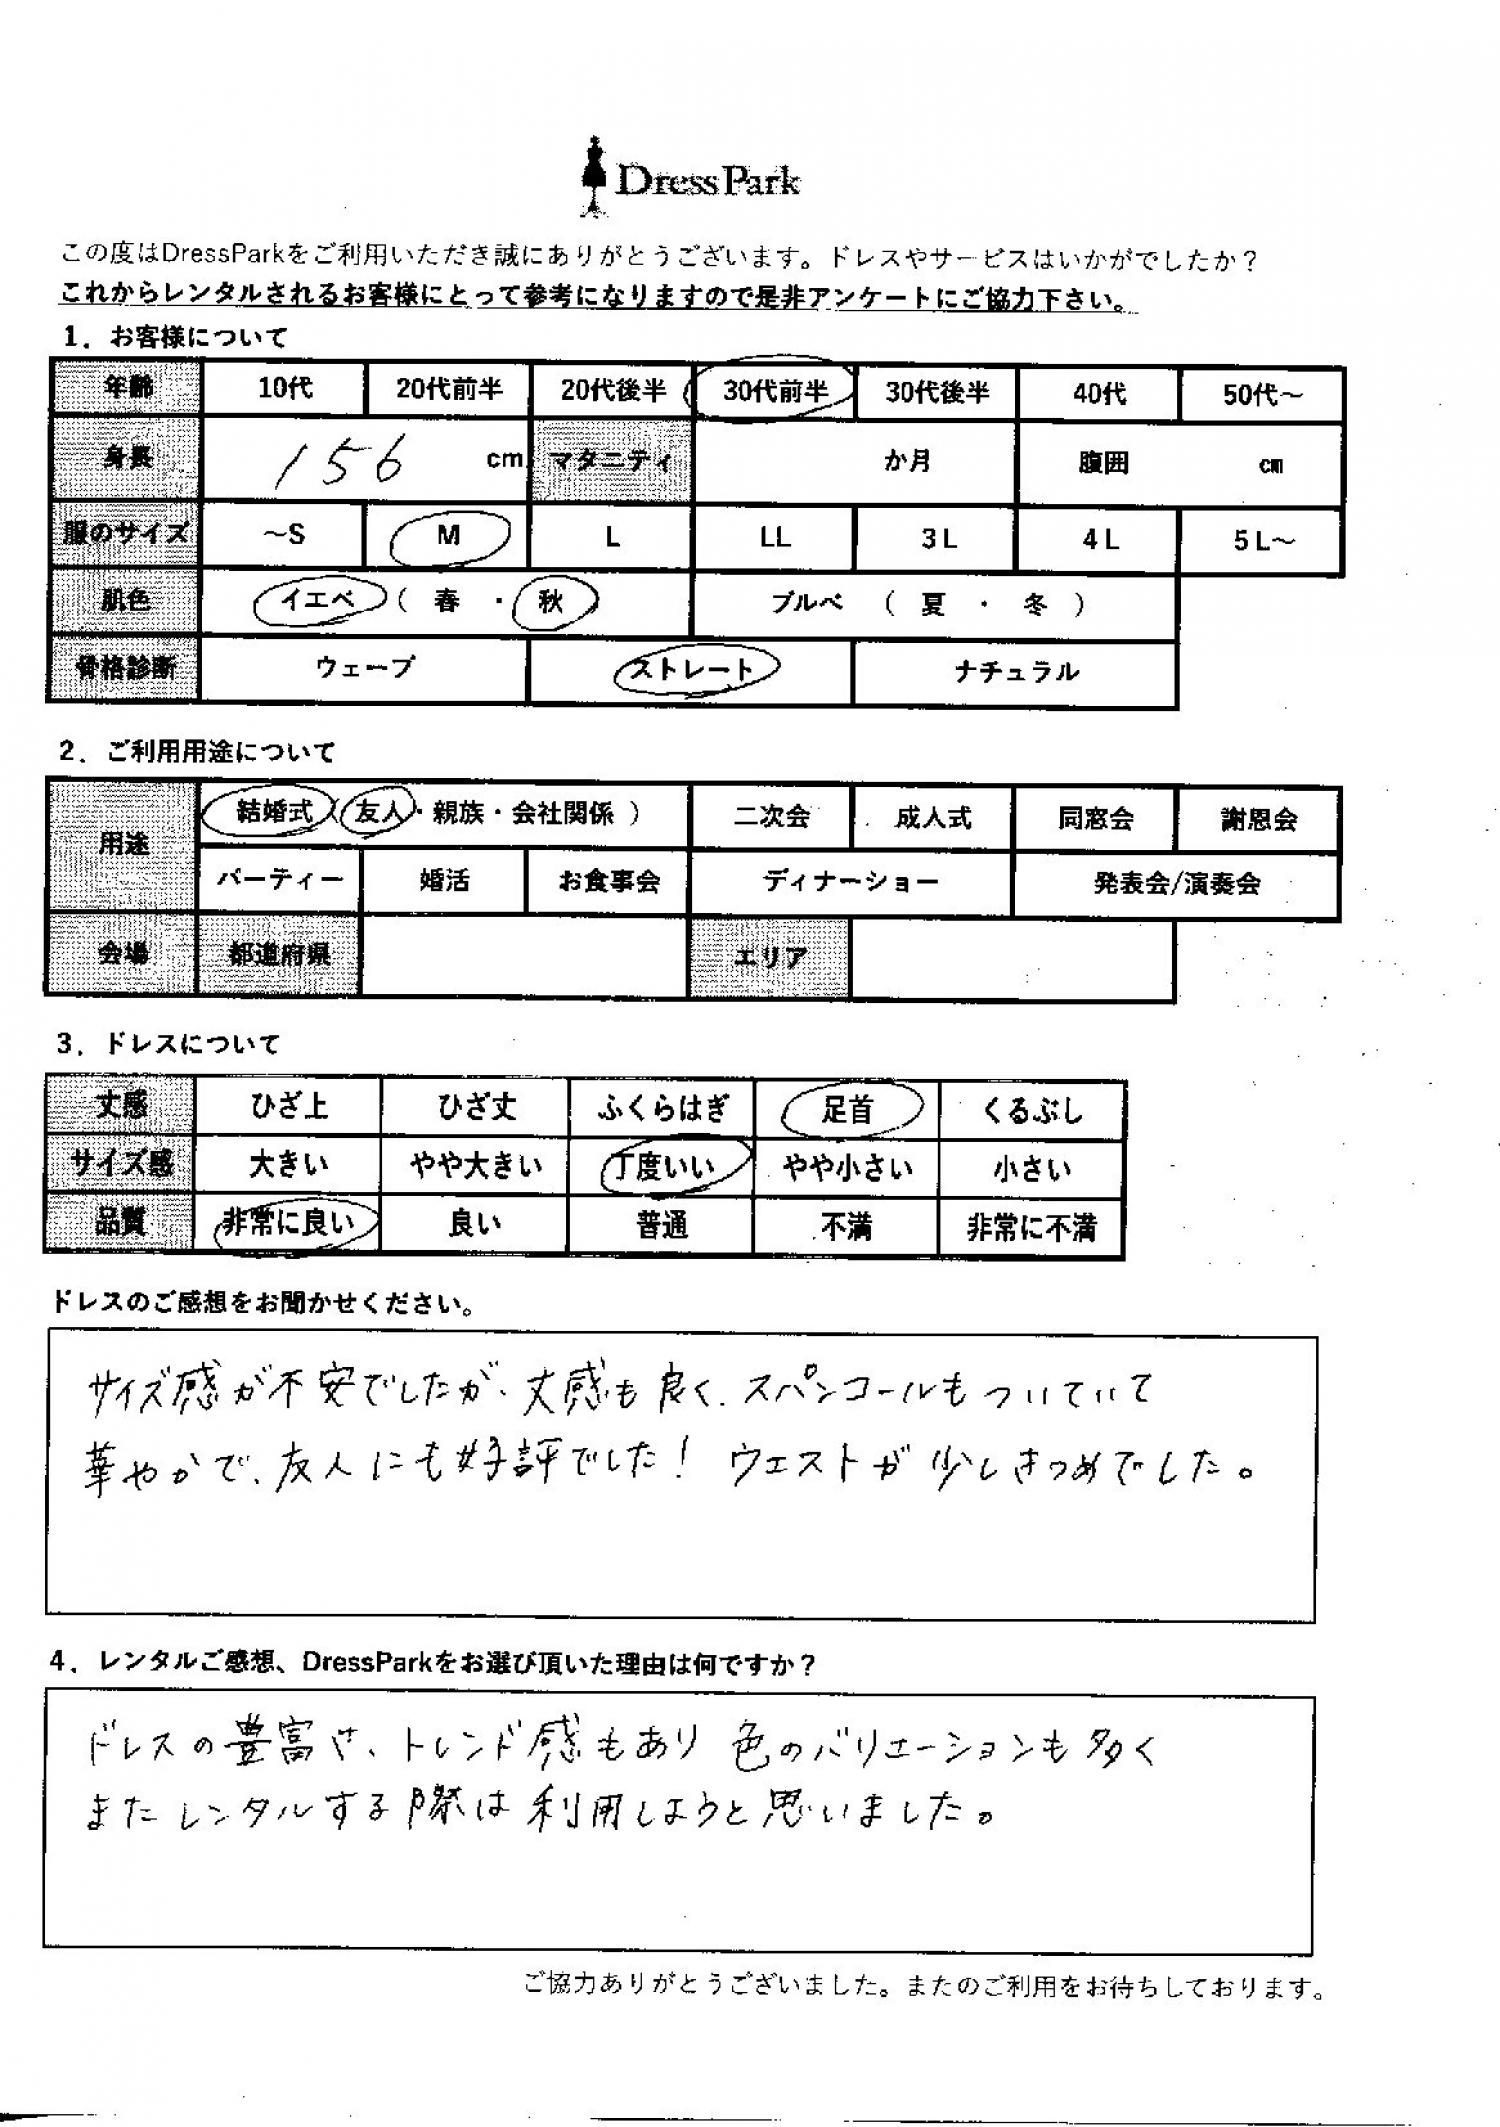 DressPark
この度はDressParkをご利用いただき誠にありがとうございます。ドレスやサービスはいかがでしたか？
これからレンタルされるお客様にとって参考になりますので是非アンケートにご協力下さい。
1．お客様について
年齢 10代 20代前半 20代後半 30代前半 30代後半 40代 50代～
身長 156 cm マタニティ か月 腹囲 cm
服のサイズ ～S M L LL 3L 4L 5L～
肌色 イエベ（ 春 ・ 秋 ） ブルベ （ 夏 ・ 冬 ）
骨格診断 ウェーブ ストレート ナチュラル
2．ご利用用途について
用途 結婚式（友人・親族・会社関係 ） 二次会 成人式 同窓会 謝恩会
パーティー 婚活 お食事会 ディナーショー 発表会/演奏会
会場 都道府県 エリア
3．ドレスについて
丈感 ひざ上 ひざ丈 ふくらはぎ 足首 くるぶし
サイズ感 大きい やや大きい 丁度いい やや小さい 小さい
品質 非常に良い 良い 普通 不満 非常に不満
ドレスのご感想をお聞かせください。
サイズ感が不安でしたが、丈感も良く、スパンコールもついていて
華やかで、友人にも好評でした！ ウエストが少しきつめでした。
4．レンタルご感想、DressParkをお選び頂いた理由は何ですか？
ドレスの豊富さ、トレンド感もあり 色のバリエーションも多く
またレンタルする際は利用しようと思いました。
ご協力ありがとうございました。またのご利用をお待ちしております。